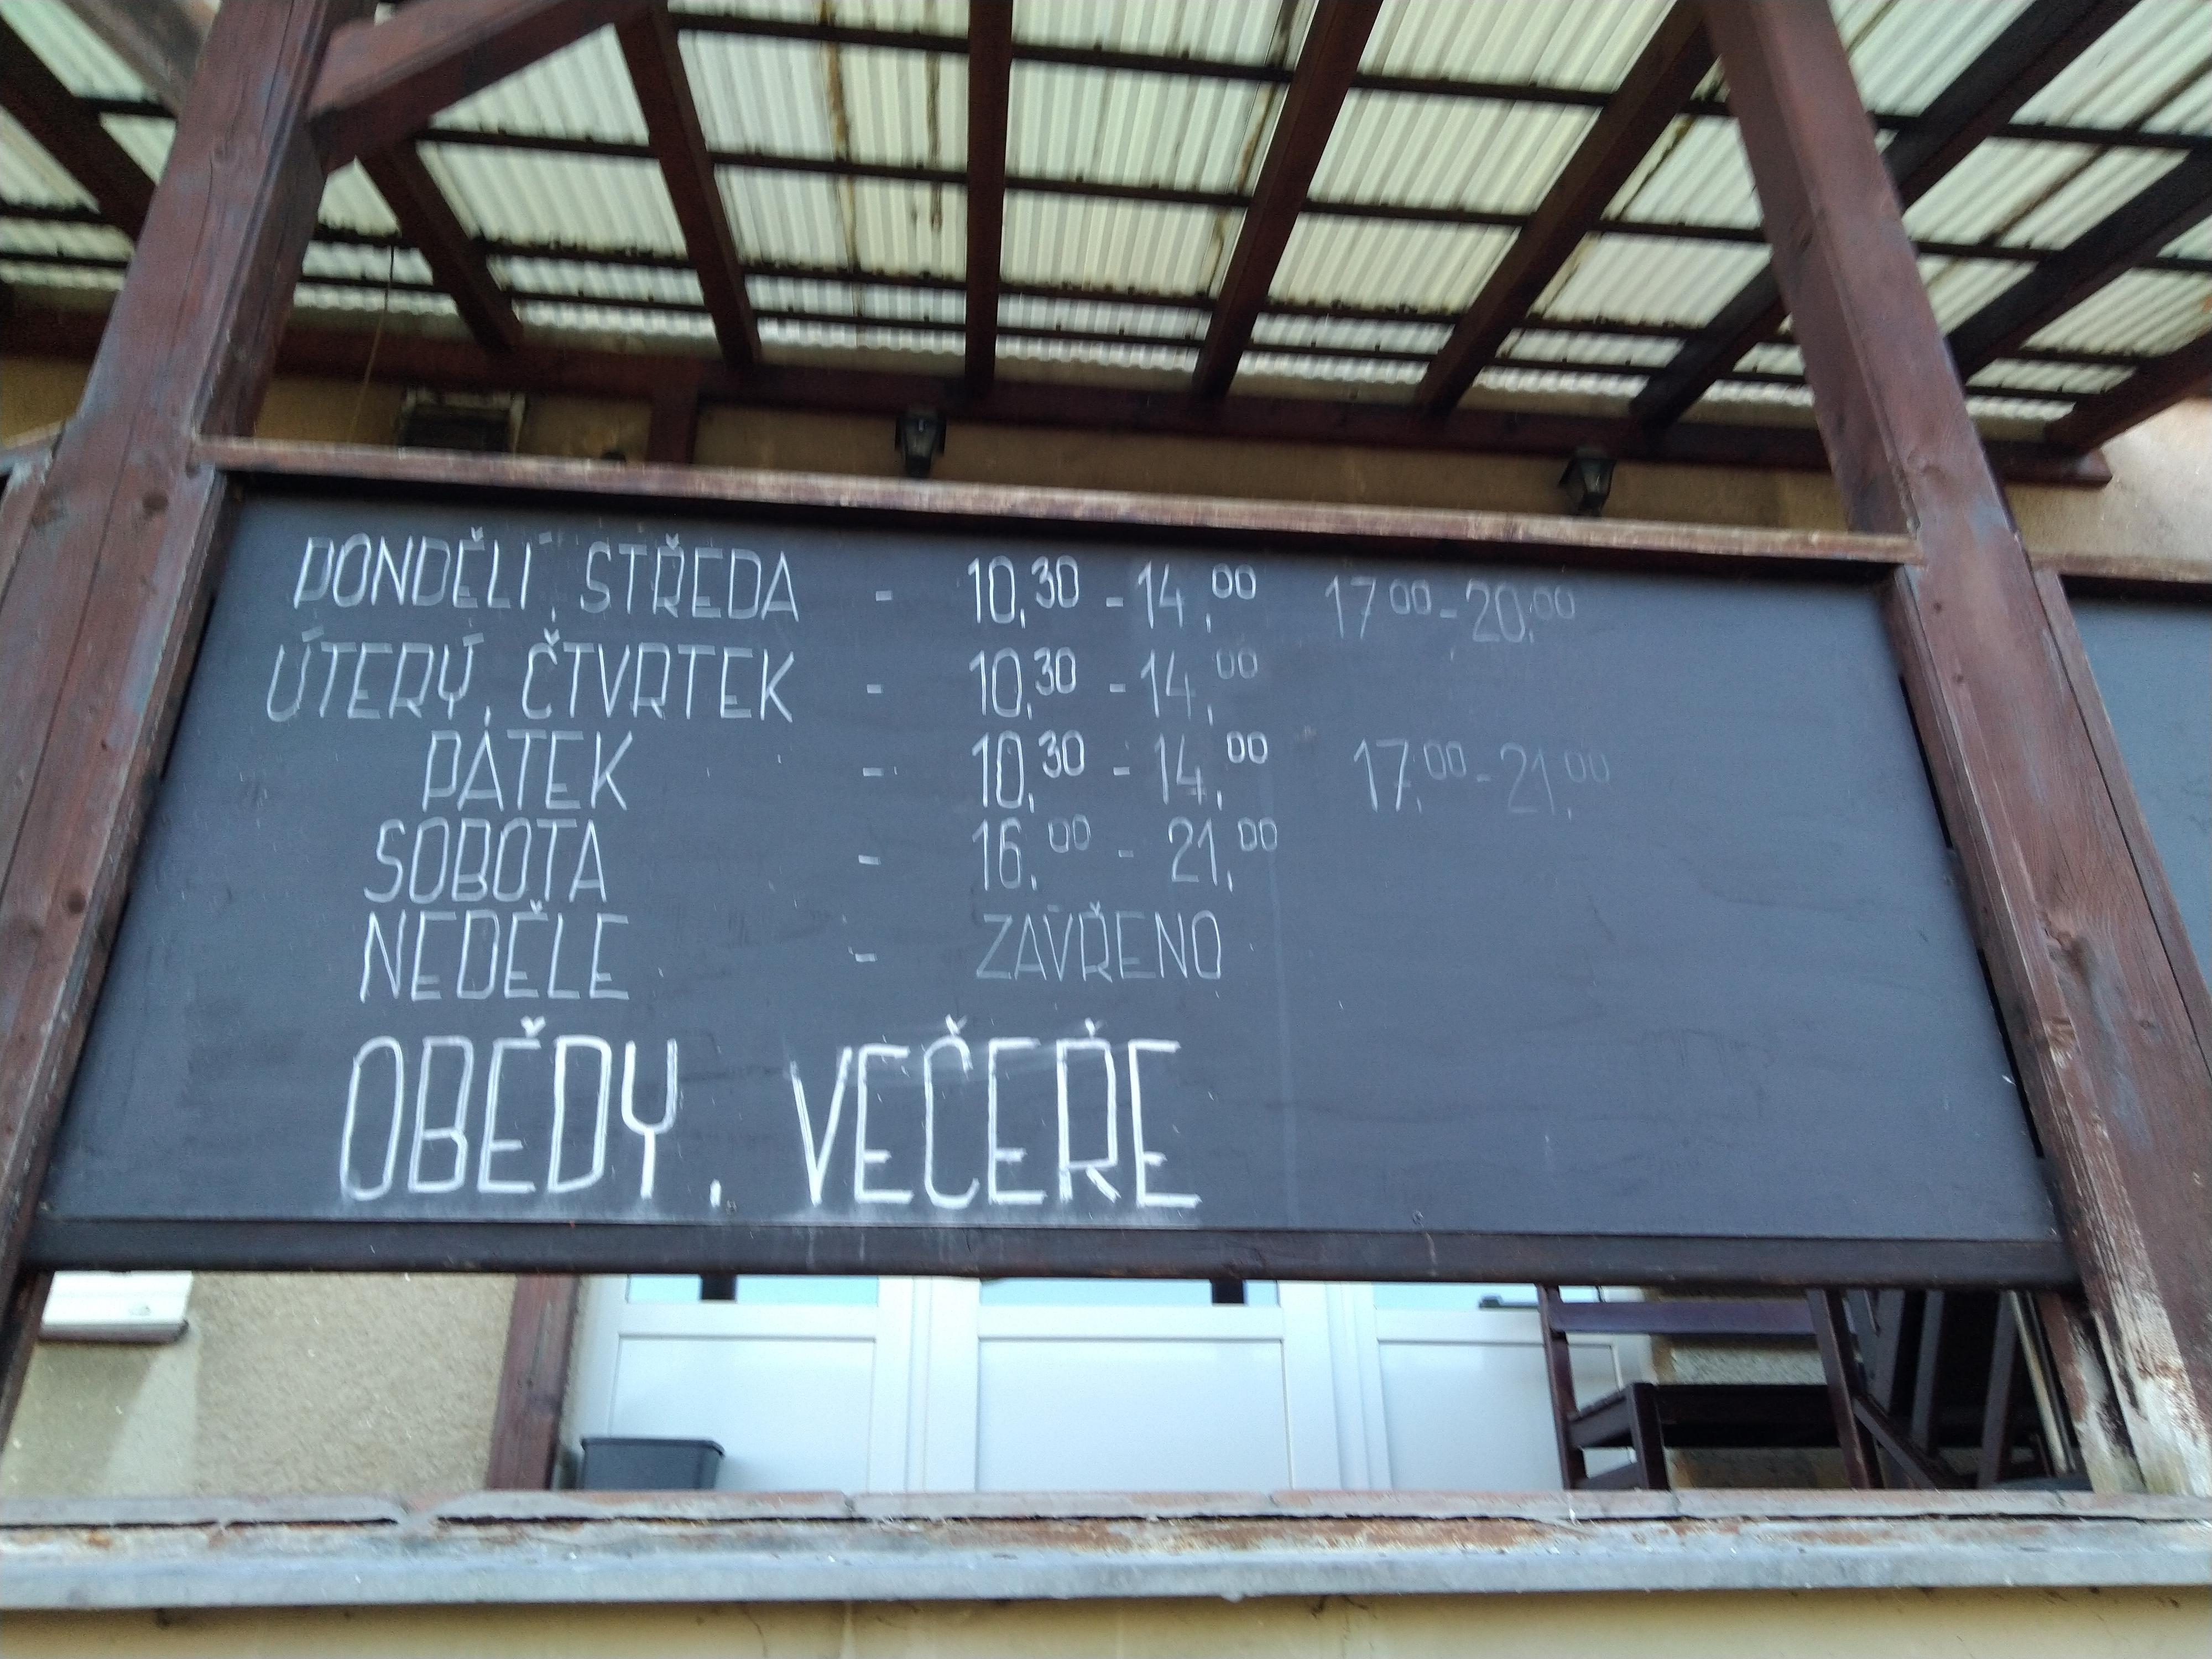 PONDĚLÍ, STŘEDA - 10,30 - 14,00 17 00 - 20,00
ÚTERÝ, ČTVRTEK - 10,30 - 14,00
PÁTEK - 10,30 - 14,00 17,00 - 21,00
SOBOTA - 16,00 - 21,00
NEDĚLE - ZAVŘENO
OBĚDY, VEČEŘE